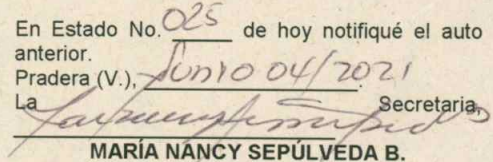 En Estado No. 025 de hoy notifiqué el auto
anterior.
Pradera (V.), Junio 04/2021
La Secretaria,
MARÍA NANCY SEPÚLVEDA B.